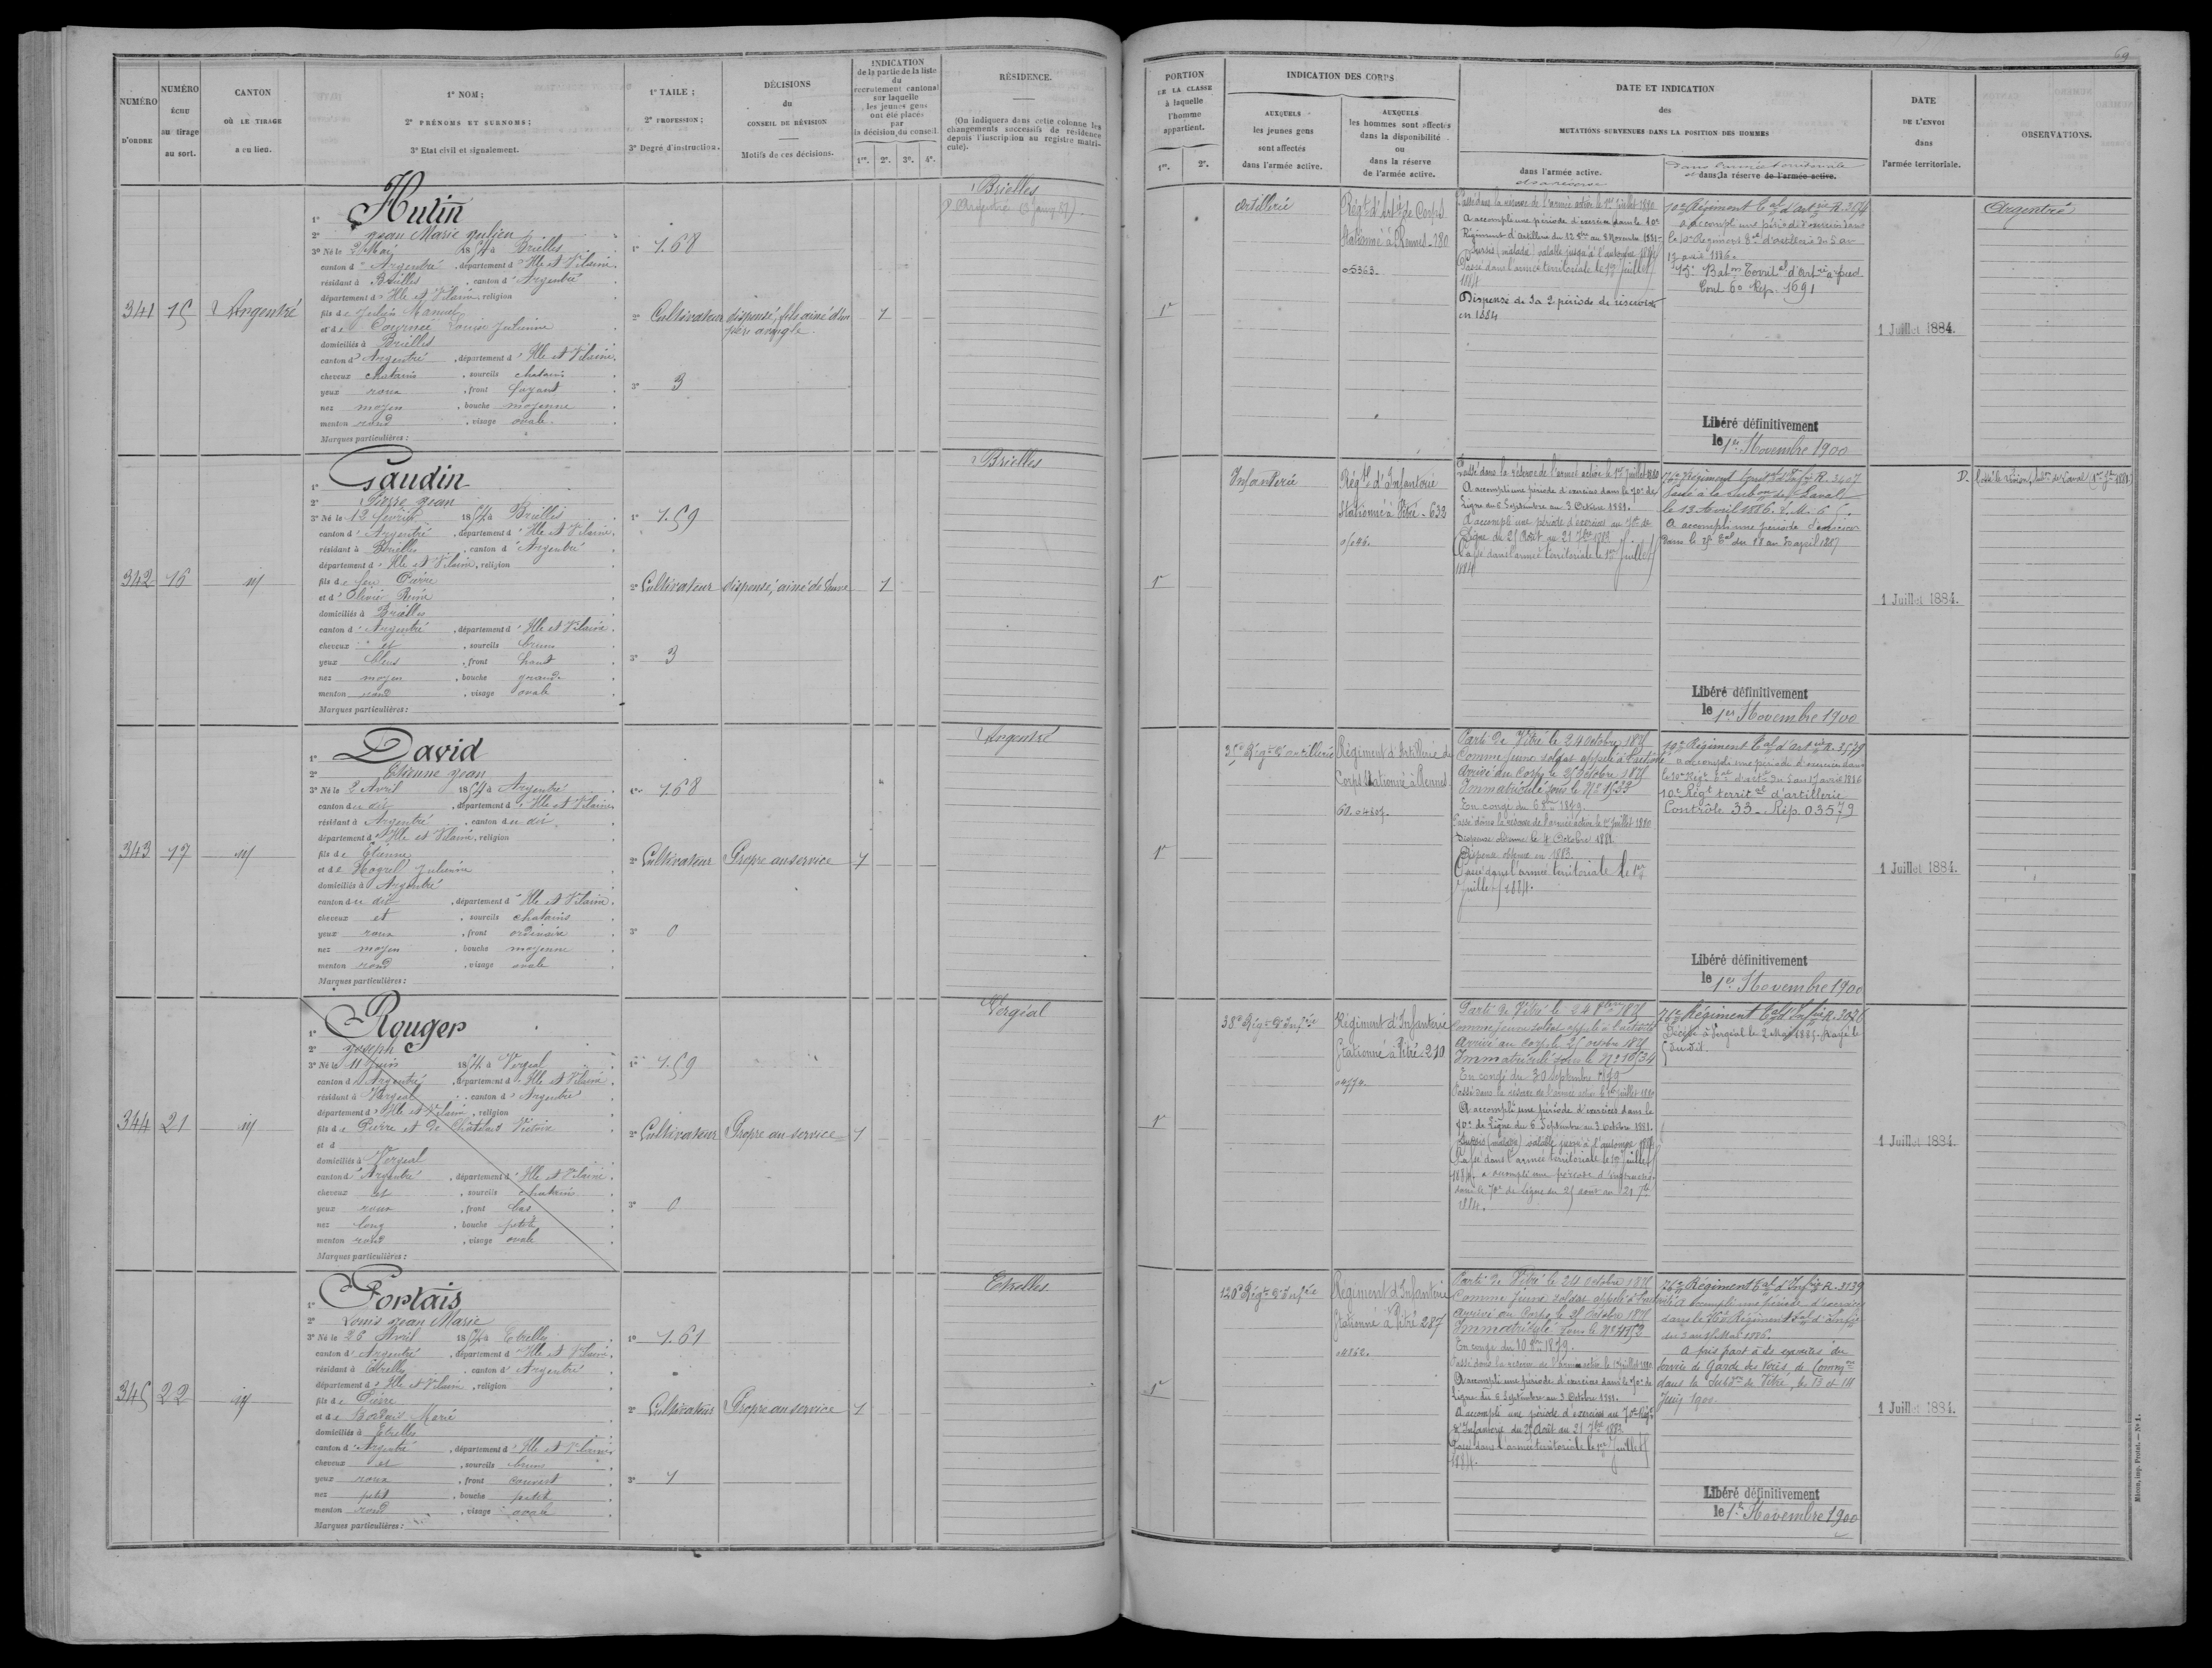 NUMÉRO
D'ORDRE
NUMÉRO
ÉCHU
au tirage
au sort.
CANTON
OÙ LE TIRAGE
a eu lieu.
1° NOM ;
2° PRÉNOMS ET SURNOMS ;
3° Etat civil et signalement.
1° TAILE ;
2° PROFESSION ;
3° Degré d'instruction.
DÉCISIONS
du
CONSEIL DE RÉVISION
Motifs de ces décisions.
INDICATION
de la partie de la liste
du
recrutement cantonal
sur laquelle
les jeunes gens
ont été placés
par
la décision du conseil
1re. 2e. 3e. 4e.
RÉSIDENCE.
(On indiquera dans cette colonne les
changements successifs de résidence
depuis l'inscription au registre matri-
cule).
341
15
Argentré
1° Hutin
2° Jean Marie Julien
3° Né le 2 Mai 1854 à Brielles
canton d' Argentré, département d' Ille et Vilaine.
résidant à Brielles, canton d' Argentré
département d' Ille et Vilaine, religion
fils de Julien
et de Louise Julienne
domiciliés à Brielles
canton d' Argentré, département d' Ille et Vilaine.
cheveux chatains, sourcils chatains
yeux roux, front fuyant
nez moyen, bouche moyenne
menton rond, visage ovale.
Marques particulières :
1° 1.68
2° Cultivateur
3° 3
dispensé, fils ainé d'un
père aveugle.
1
Brielles
342
16
id
1° Gaudin
2° Pierre Jean
3° Né le 12 février 1854 à Brielles
canton d' Argentré, département d' Ille et Vilaine.
résidant à Brielles, canton d' Argentré
département d' Ille et Vilaine, religion
fils de feu Pierre
et d' Olivier
domiciliés à Brielles
canton d' Argentré, département d' Ille et Vilaine.
cheveux et, sourcils bruns
yeux bleus, front haut
nez moyen, bouche grande
menton rond, visage ovale
Marques particulières :
1° 1.59
2° Cultivateur
3° 3
dispensé, ainé de veuve
1
Brielles
343
17
id
1° David
2° Etienne Jean
3° Né le 2 Avril 1854 à Argentré
canton du dit, département d' Ille et Vilaine
résidant à Argentré, canton du dit
département d' Ille et Vilaine, religion
fils de Etienne
et de Julienne
domiciliés à Argentré
canton du dit, département d' Ille et Vilaine.
cheveux et, sourcils chatains
yeux roux, front ordinaire
nez moyen, bouche moyenne
menton rond, visage ovale
Marques particulières :
1° 1.68
2° Cultivateur
3° 0
Propre au service
1
Argentré
344
21
id
1° Rouger
2° Joseph
3° Né le 11 Juin 1854 à Vergeal
canton d' Argentré, département d' Ille et Vilaine
résidant à Vergeal, canton d' Argentré
département d' Ille et Vilaine, religion
fils de Pierre et de Victoire
et d
domiciliés à Vergeal
canton d' Argentré, département d' Ille et Vilaine.
cheveux et, sourcils chatains
yeux roux, front bas
nez long, bouche petite
menton rond, visage ovale
Marques particulières :
1° 1.59
2° Cultivateur
3° 0
Propre au service
1
Vergéal
345
22
id
1° Portais
2° Louis Jean Marie
3° Né le 26 Avril 1854 à Etrelles
canton d' Argentré, département d' Ille et Vilaine.
résidant à Etrelles, canton d' Argentré
département d' Ille et Vilaine, religion
fils de Pierre
et de Marie
domiciliés à Etrelles
canton d' Argentré, département d' Ille et Vilaine
cheveux et, sourcils bruns
yeux roux, front couvert
nez petit, bouche petite
menton rond, visage ovale
Marques particulières :
1° 1.61
2° Cultivateur
3° 1
Propre au service
1
Etrelles
69
PORTION
DE LA CLASSE
à laquelle
l'homme
appartient.
1re. 2e.
INDICATION DES CORPS
AUXQUELS
les jeunes gens
sont affectés
dans l'armée active.
AUXQUELS
les hommes sont affectés
dans la disponibilité
ou
dans la réserve
de l'armée active.
DATE ET INDICATION
des
MUTATIONS SURVENUES DANS LA POSITION DES HOMMES
dans l'armée active.
et la réserve
Dans l'armée territoriale
et dans la réserve de l'armée active.
DATE
DE L'ENVOI
dans
l'armée territoriale.
OBSERVATIONS.
1re
Artillerie
Régt d'Artie de Corps
Stationné à Rennes - 280
05363.
Passé dans la réserve de l'armée active le 1er Juillet 1880
A accompli une période d'exercices dans le 10e
Régiment d'Artillerie du 12 8bre au 8 Novembre 1881
Sursis (malade) valable jusqu'à l'automne 1884
Passé dans l'armée territoriale le 1er Juillet
1884
Dispensé de la 2e période de réserviste
en 1884
10e Régiment tal d'artie R. 3574
a accompli une période d'exercices dans
le 10e Régiment tal d'artillerie du 5 au
17 avril 1886.
Cont 60 Rép. 1691
Libéré définitivement
le 1er Novembre 1900
1 Juillet 1884.
Argentré
1re
Infanterie
Régt d'Infanterie
Stationné à Vitré - 632
Passé dans la réserve de l'armée active le 1er Juillet 1880
A accompli une période d'exercices dans le 70e de
Ligne du 6 Septembre au 3 Octobre 1881.
A accompli une période d'exercices au 70e de
Ligne du 25 Août au 21 7bre 1883
Passé dans l'armée territoriale le 1er Juillet
1884
76e Régiment tal d'Infie R. 3407
Passé à la Subon de Laval
le 13 Avril 1886.
A accompli une période d'exercices
dans le 25e tal du 18 au 30 avril 1887
Libéré définitivement
le 1er Novembre 1900
1 Juillet 1884.
D.
1re
35e Régt d'artillerie
Régiment d'Artillerie de
Corps Stationné à Rennes
Parti de Vitré le 24 Octobre 1875
Comme jeune soldat appelé à l'activité
Arrivé au Corps le 25 Octobre 1875
Immatriculé sous le No 1533
En congé du 6 8bre 1879.
Passé dans la réserve de l'armée active le 1er Juillet 1880
Dispense obtenue le 4 Octobre 1881
Dispense obtenue en 1883.
Passé dans l'armée territoriale le 1er
Juillet 1884.
10e Régiment tal d'artie R. 3579
a accompli une période d'exercices dans
le 10e Régt tal d'artie du 5 au 17 avril 1886
10e Régt territ al d'artillerie
Contrôle 33 - Rép. 03579
Libéré définitivement
le 1er Novembre 1900
1 Juillet 1884.
1re
38e Régt d'Infie
Régiment d'Infanterie
Stationné à Vitré 210
Parti de Vitré le 24 8bre 1875
Comme jeune soldat appelé à l'activité
Arrivé au Corps le 25 octobre 1875
Immatriculé sous le No 10534
En congé du 30 septembre 1879
Passé dans la réserve de l'armée active le 1er Juillet 1880
A accompli une période d'exercices dans le
70e de Ligne du 6 Septembre au 3 Octobre 1881.
Sursis (malade) valable jusqu'à l'automne 1884
Passé dans l'armée territoriale le 1er Juillet
1884. a accompli une période d'exercices
dans le 70e de Ligne du 25 aout au 21 7bre
1884.
76e Régiment tal d'Infie R. 3076
Décédé à Vergéal le 2 Mai 1885. Rayé le
5 du dit.
1 Juillet 1884.
1re
120e Régt d'Infie
Régiment d'Infanterie
Stationné à Vitré 287
Parti de Vitré le 24 Octobre 1875
Comme jeune soldat appelé à l'activité
Arrivé au Corps le 25 Octobre 1875
Immatriculé sous le No
En congé du 10 8bre 1879.
Passé dans la réserve de l'armée active le 1er Juillet 1880
A accompli une période d'exercices dans le 70e de
Ligne du 6 Septembre au 3 Octobre 1881.
A accompli une période d'exercices au 70e Régt
d'Infanterie du 25 Août au 21 7bre 1883
Passé dans l'armée territoriale le 1er Juillet
1884.
76e Régiment tal d'Infie R. 3139
A accompli une période d'exercices
dans le 76e Régiment tal d'Infie
du 3 au 15 Mai 1886.
A pris part à des exercices du
Service de Garde des Voies de Commons
dans la Subdon de Vitré, le 13 et 14
Juin 1900.
Libéré définitivement
le 1er Novembre 1900
1 Juillet 1884.